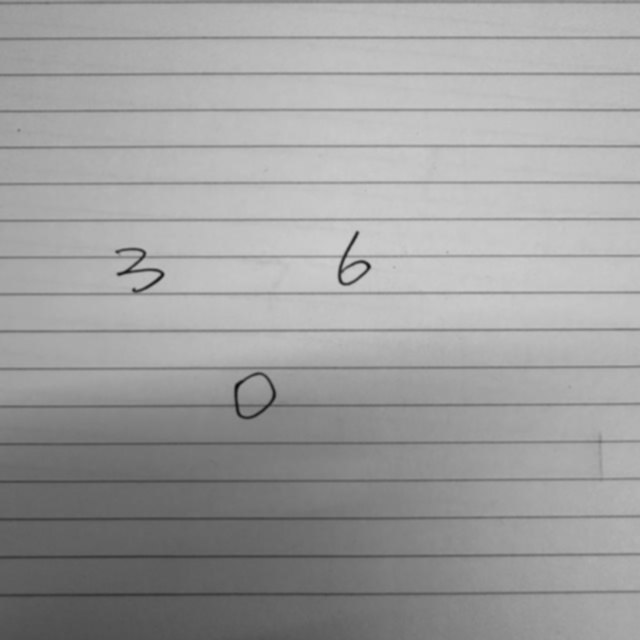 3 6
0